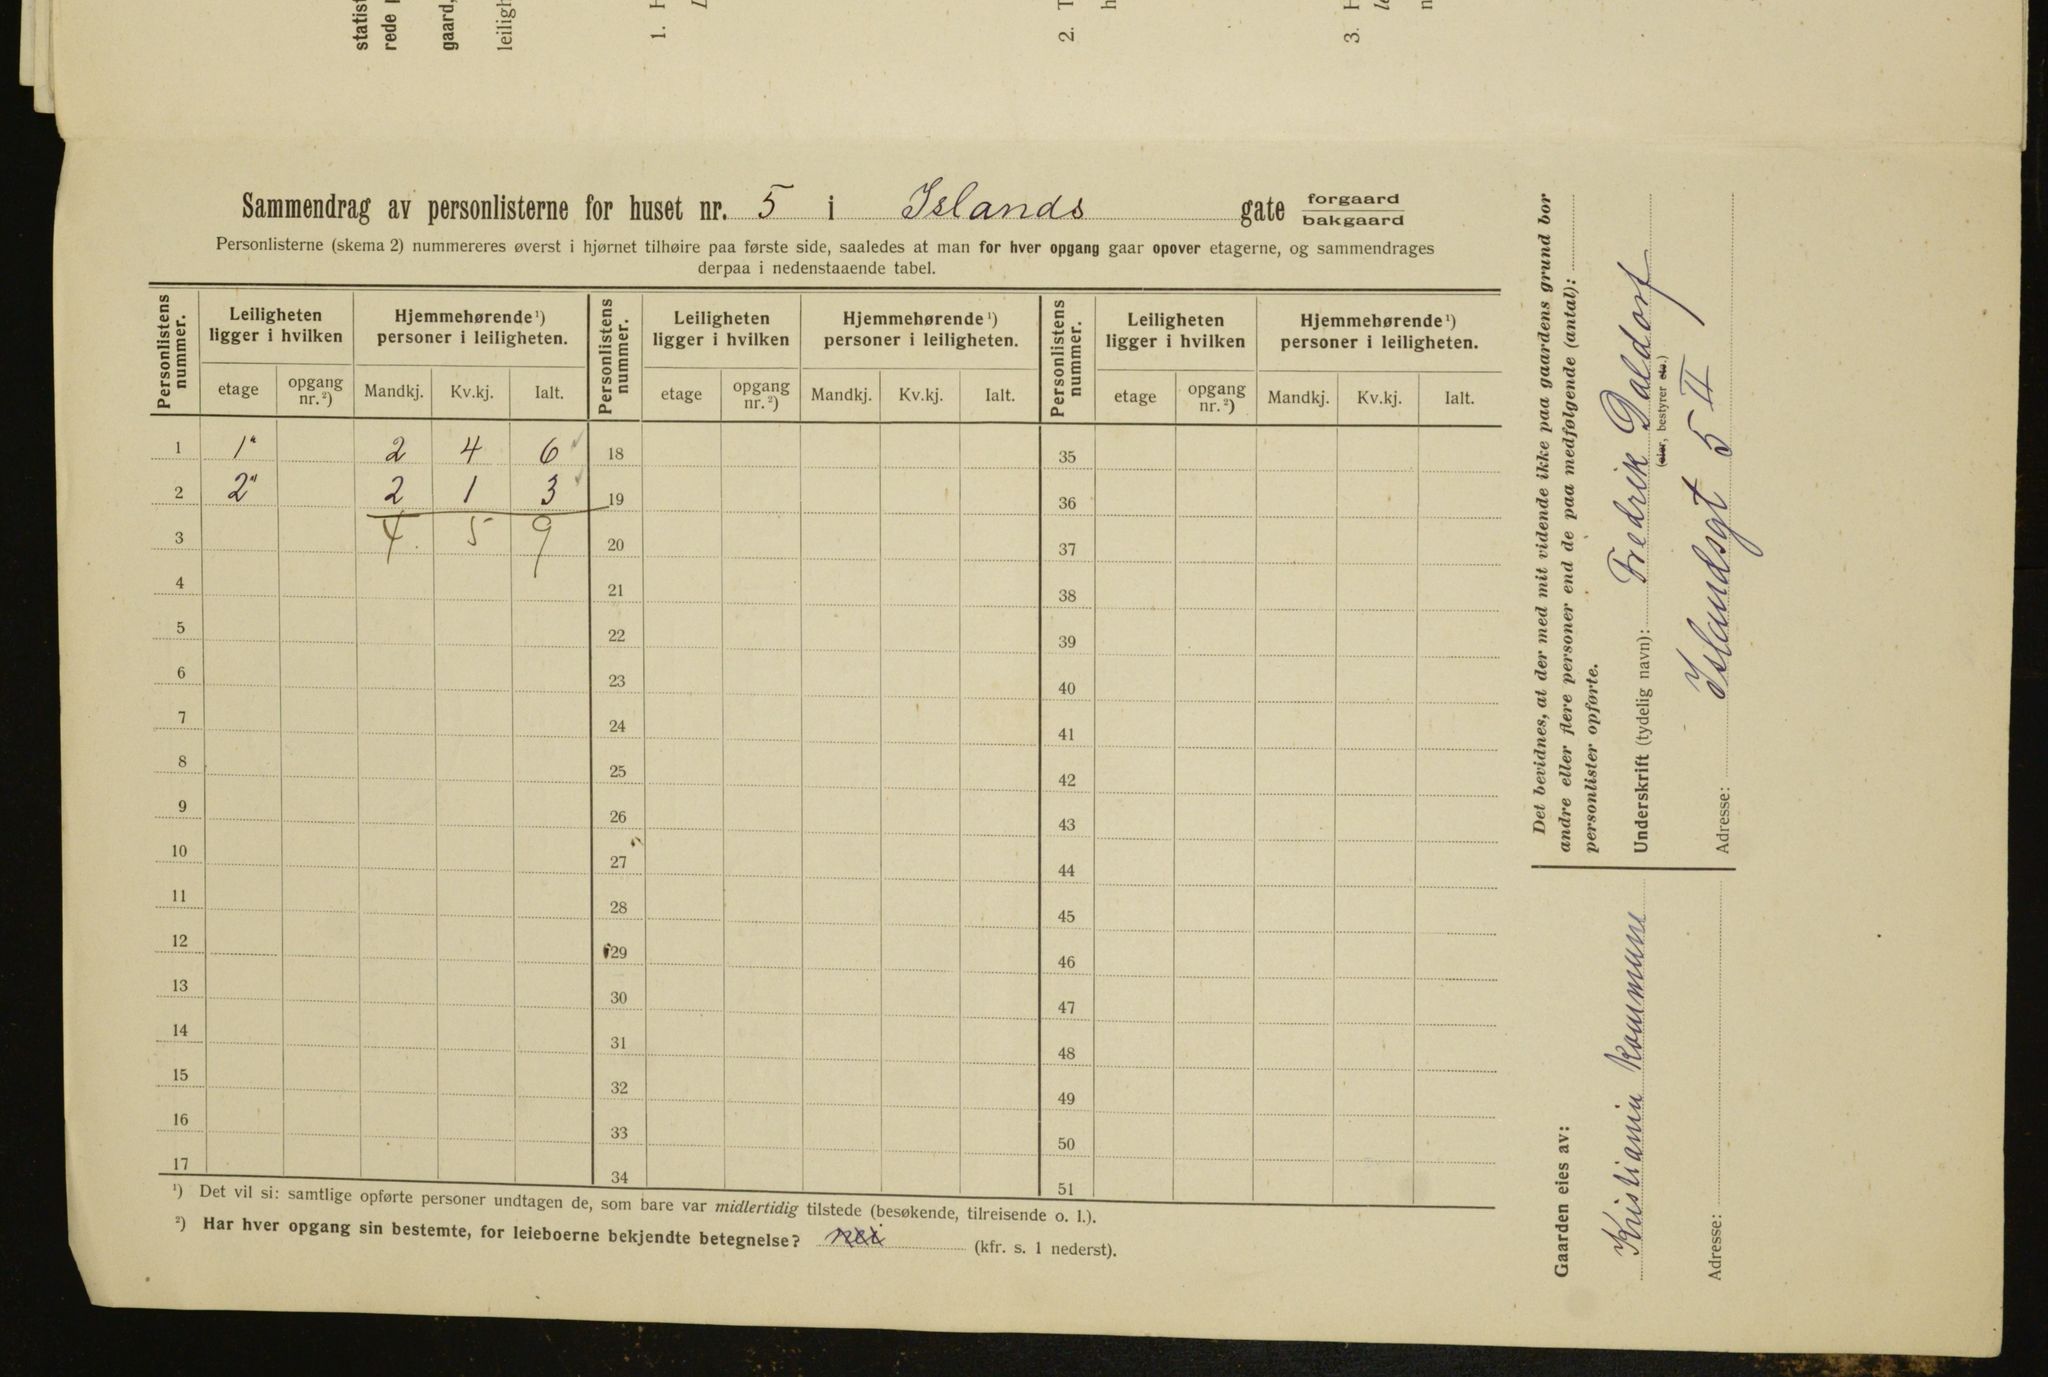 statist
rede
gaard,
leiligh
1. H
2. T
h
3. H
Sammendrag av personlisterne for huset nr. 5 i Islands gate forgaard
bakgaard
Personlisterne (skema 2) nummereres øverst i hjørnet tilhøire paa første side, saaledes at man for hver opgang gaar opover etagerne, og sammendrages
derpaa i nedenstaaende tabel.
Personlistens nummer. Leiligheten ligger i hvilken Hjemmehørende ¹) personer i leiligheten. Personlistens nummer. Leiligheten ligger i hvilken Hjemmehørende ¹) personer i leiligheten. Personlistens nummer. Leiligheten ligger i hvilken Hjemmehørende ¹) personer i leiligheten.
etage opgang nr. ²) Mandkj. Kv.kj. Ialt. etage opgang nr. ²) Mandkj. Kv.kj. Ialt. etage opgang nr. ²) Mandkj. Kv.kj. Ialt.
1 1" 2 4 6 18 35
2 2" 2 1 3 19 36
3 4 5 9 20 37
4 21 38
5 22 39
6 23 40
7 24 41
8 25 42
9 26 43
10 27 44
11 28 45
12 29 46
13 30 47
14 31 48
15 32 49
16 33 50
17 34 51
¹) Det vil si: samtlige opførte personer undtagen de, som bare var midlertidig tilstede (besøkende, tilreisende o. l.).
²) Har hver opgang sin bestemte, for leieboerne bekjendte betegnelse? nei (kfr. s. 1 nederst).
Det bevidnes, at der med mit vidende ikke paa gaardens grund bor
andre eller flere personer end de paa medfølgende (antal):
personlister opførte.
Underskrift (tydelig navn): Fredrik Daldorf
(eier, bestyrer etc.)
Adresse: Islandsgt 5 II
Gaarden eies av:
Kristiania kommune
Adresse: